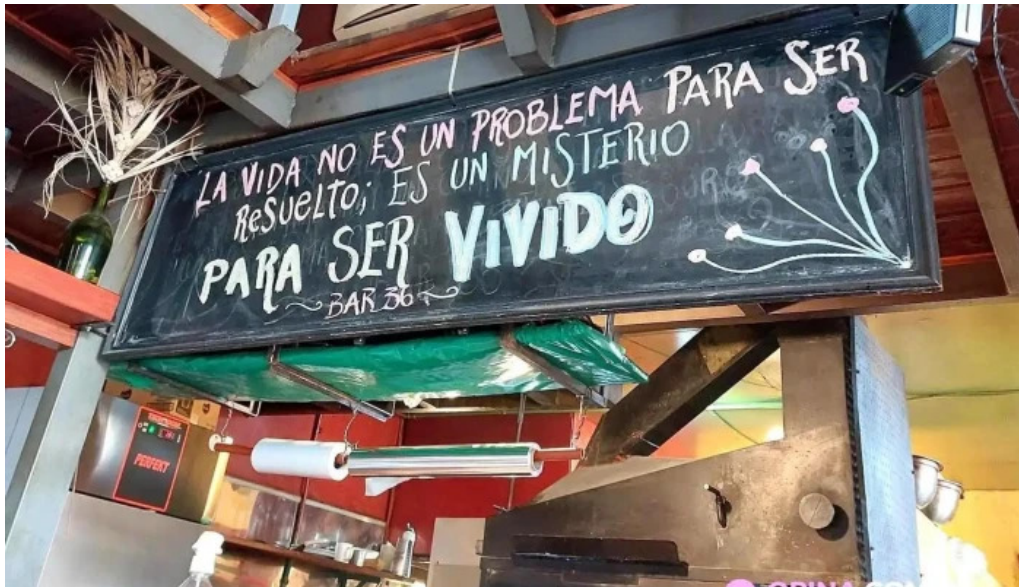 LA VIDA NO ES UN PROBLEMA PARA SER
ReSUELTO; ES UN MISTERIO
PARA SER VIVIDO
BAR 36
PERFEKT